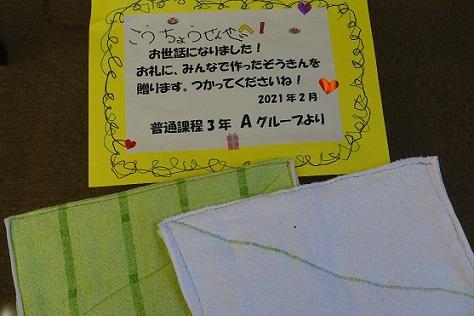 こうちょうせんせいへ!
お世話になりました!
お礼に、みんなで作ったぞうきんを
贈ります。つかってくださいね!
2021年2月
普通課程3年 Aグループより